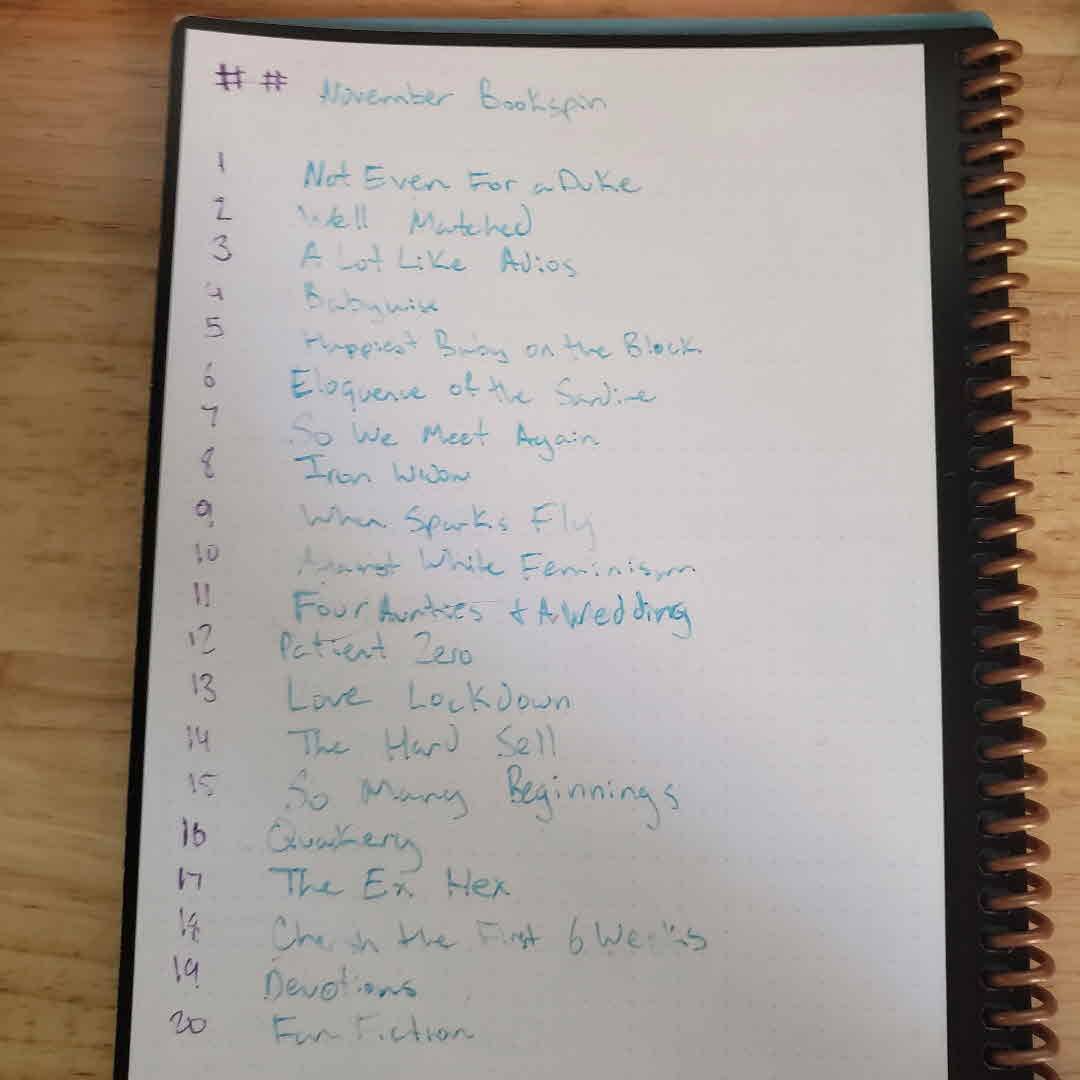 ## November Bookspin
1 Not Even For a Duke
2 Well Matched
3 A Lot Like Adios
4 Babywise
5 Happiest Baby on the Block
6 Eloquence of the Sardine
7 So We Meet Again
8 Iron Widow
9 When Sparks Fly
10 Against White Feminism
11 Four Aunties + A Wedding
12 Patient Zero
13 Love Lockdown
14 The Hard Sell
15 So Many Beginnings
16 Quackery
17 The Ex Hex
18 Cherish the First 6 Weeks
19 Devotions
20 Fan Fiction